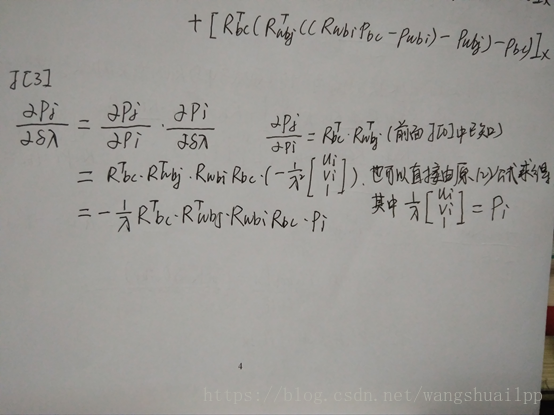 + [R_bc^T(R_wbj^T((R_wbi p_bc - p_wbi) - p_wbj) - p_bc)]_x
J[3]
∂Pj/∂δλ = ∂Pj/∂Pi · ∂Pi/∂δλ    ∂Pj/∂Pi = R_bc^T · R_wbj^T · (前面J[0]中已知)
= R_bc^T · R_wbj^T · R_wbi R_bc · (-1/λ² [ui vi 1]). 也可以直接由原(2)公式求得
= -1/λ R_bc^T · R_wbj^T · R_wbi R_bc · Pi    其中 1/λ [ui vi 1] = Pi
4
https://blog.csdn.net/wangshuailpp